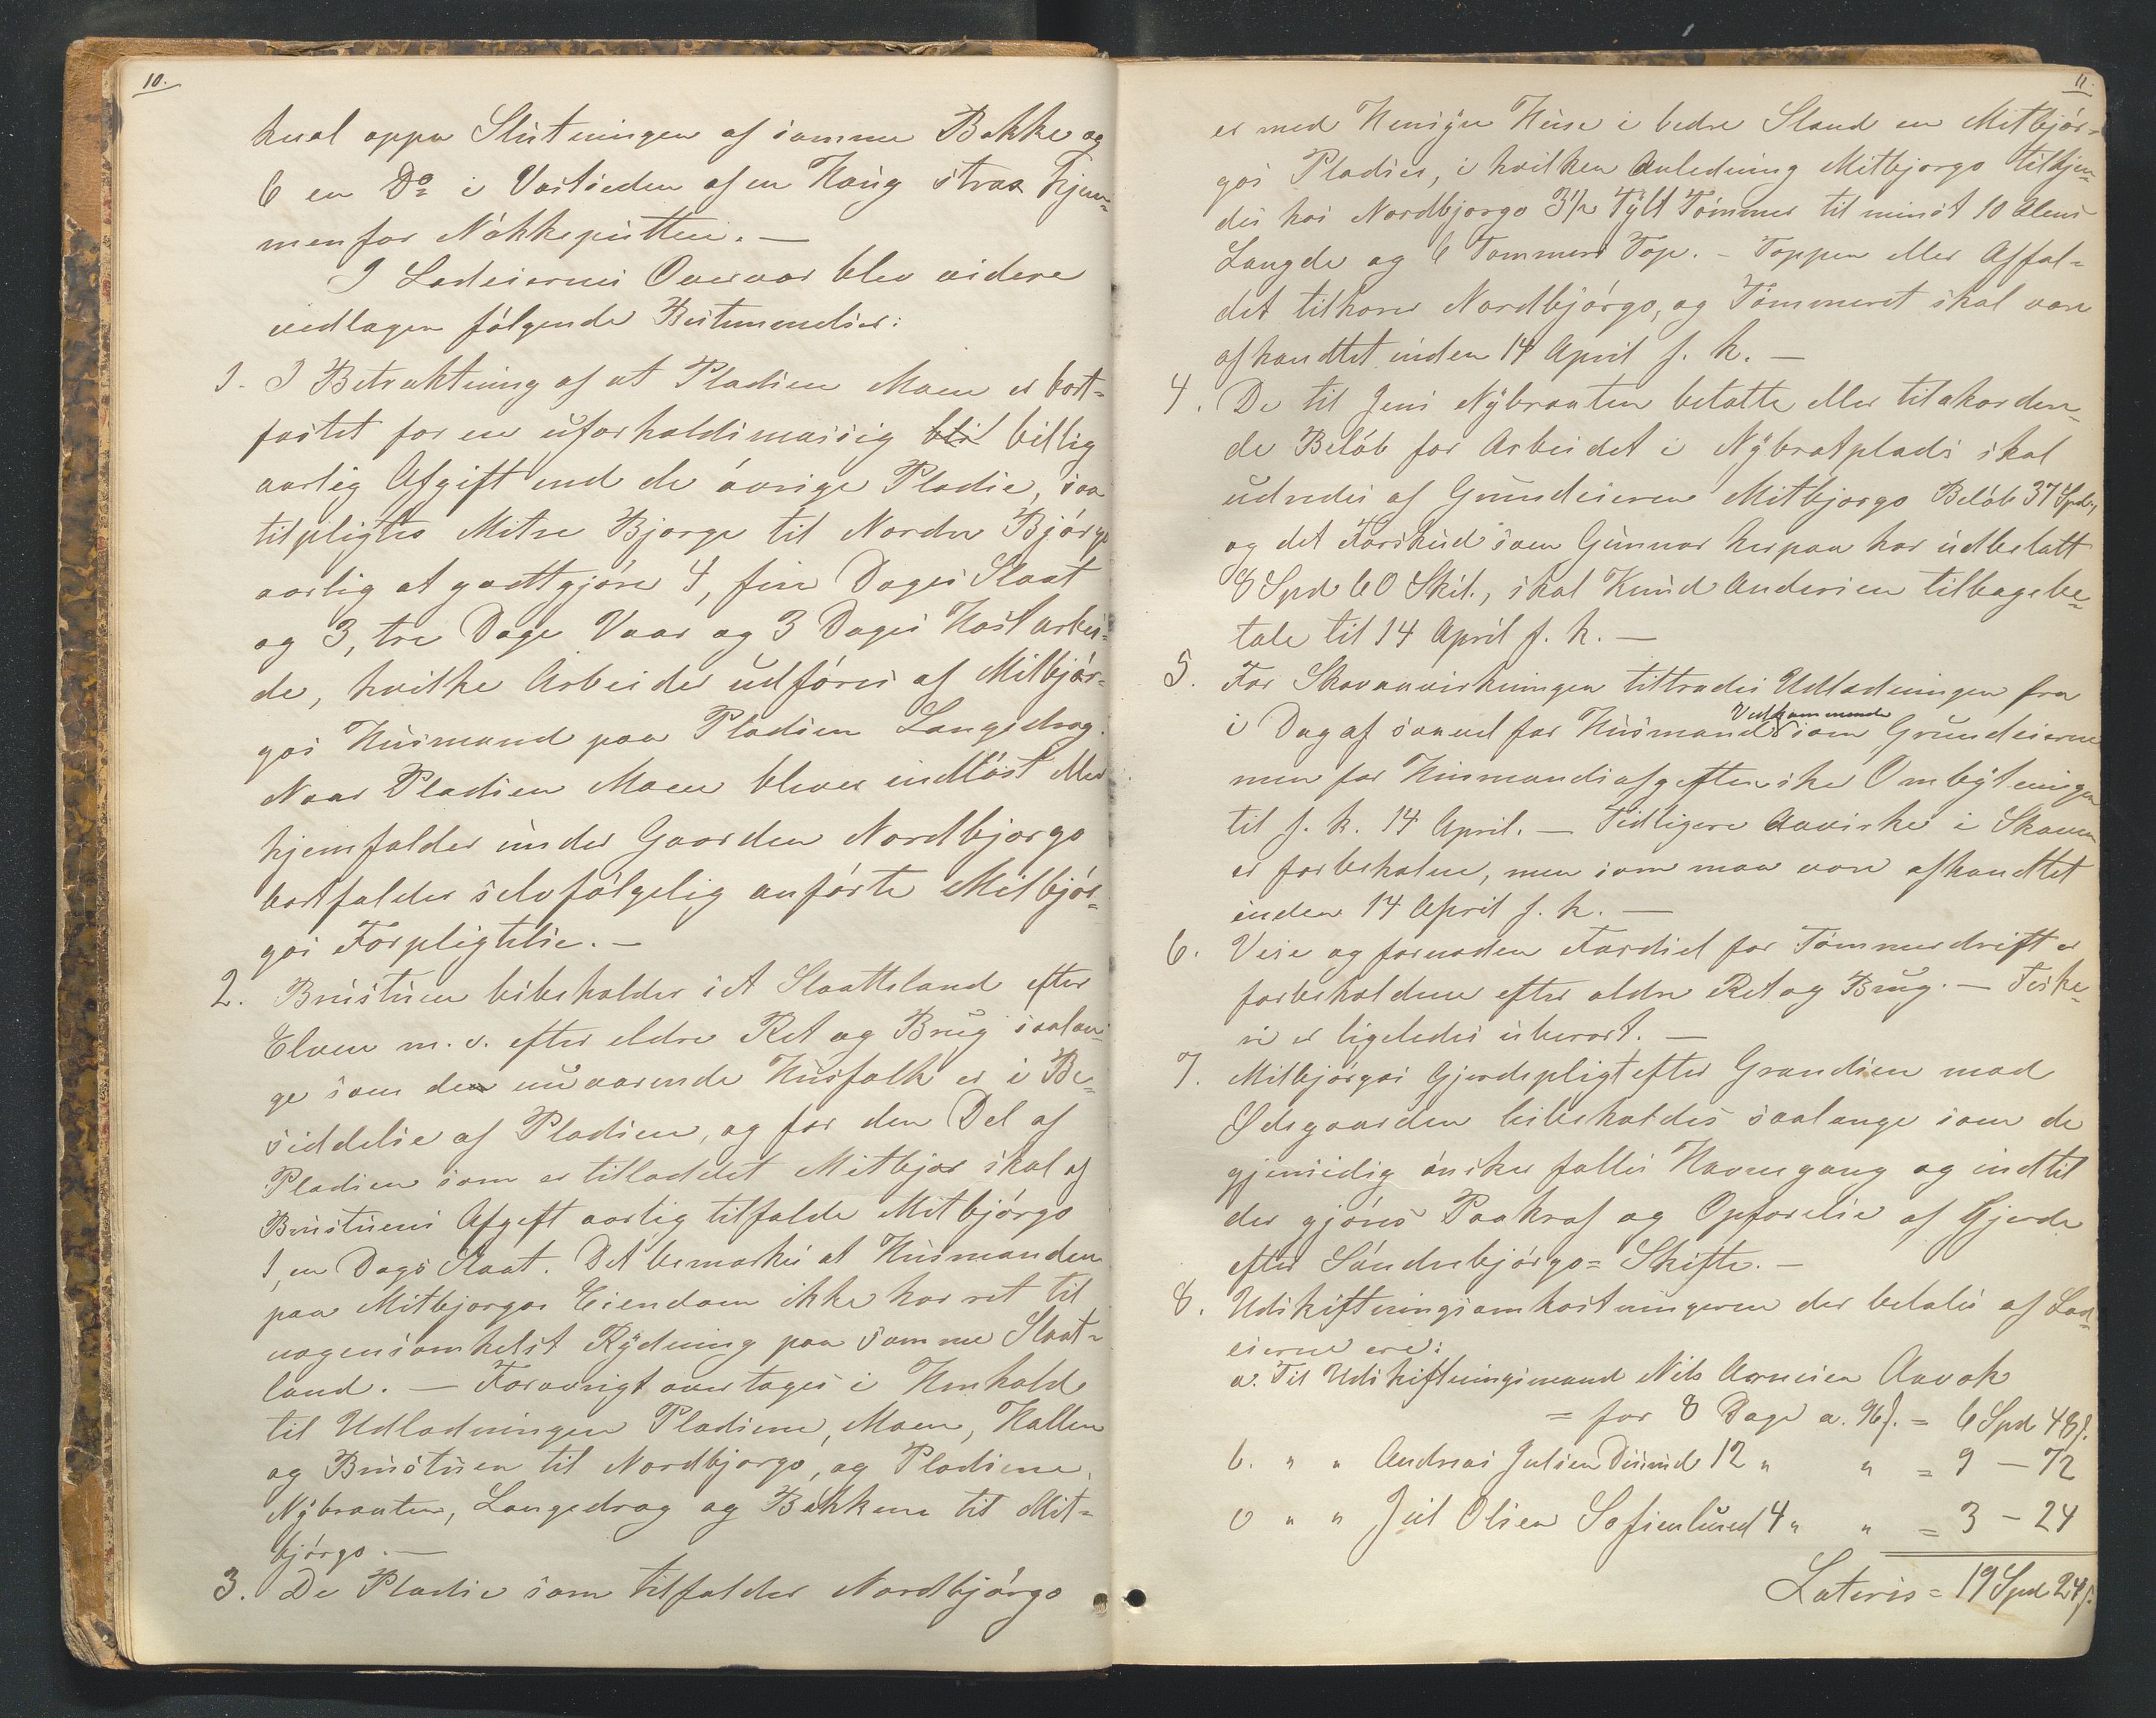 10.
hual oppa Slutningen af samme Bakke og
6 en Do i Vestsieden af en Haug strax hjem-
menfor Nökkeputten. —
I Lodeiernes Overvær blev videre
vedtagen følgende Bestemmelser:
1. I Betraktning af at Pladsen Moen er bort-
fæstet for en uforholdsmæssig bli billig
aarlig Afgift end de ávrige Pladse, saa
tilpligtes Mitre Bjorge til Nordre Bjórge
aarlig at godtgjóre 4, fire Dages Slaat
og 3, tre Dage Vaar og 3 Dages Høst arbei-
de, hvilke Arbeider udføres af Mitbjór-
gos Husmand paa Pladsen Langedrag.
Naar Pladsen Moen bliver indlöst eller
hjemfalder under Gaarden Nordbjorgo
bortfalder selvfølgelig anførte Mitbjór-
gos Forpligtelse. —
2. Brustuen bibeholder sit Slaatteland efter
Elven m. v. efter eldre Ret og Brug saalæn-
ge som den nuværende Husfolk er i Be-
siddelse af Pladsen, og for den Del af
Pladsen som er tilloddet Mitbjor skal af
Brustuens Afgift aarlig tilfalde Mitbjórgo
1, en Dags Slaat. Det bemærkes at Husmanden
paa Mitbjorgos Eiendom ikke har ret til
nogensomhelst Rydning paa samme Slaat-
land. — Forøvrigt overtages i Henhold
til Udlodningen Pladsene, Moen, Hallen
og Brustuen til Nordbjorgo, og Pladsene,
Nybraaten, Langedrag og Bakkene til Mit-
bjórgo. —
3. De Pladse som tilfalder Nordbjórgo
11.
er med Hensyn Huse i bedre Stand en Mitbjór-
gos Pladser, i hvilken Anledning Mitbjorgo tilkjen-
des hos Nordbjorgo 3½ Tylt Tömmer til minst 10 Alens
Længde og 6 Tommers Top. – Toppen eller Affal-
det tilhører Nordbjórgo, og Tömmeret skal være
afhændtet inden 14 April f. k. —
4. De til Jens Nybraaten betalte eller tilakorde-
de Belöb for Arbeidet i Nybrotplads skal
udredes af Grundeieren Mitbjorgo Belöb 37 Spd.,
og det Forskud som Gunnar herpaa har udbetalt
8 Spd 60 Skil., skal Knud Andersen tilbagebe-
tale til 14 April f. k. —
5. For Skovanvirkningen tiltrædes Udlodningen fra
i Dag af saavel for Husmænd som Vedkommende Grundeierne
men for Husmandsafgiften ske Ombytningen
til f. k. 14 April. — Tidligere Anvirke i Skoven
er forbeholden, men som maa være afhændtet
inden 14 April f. k. —
6. Veie og fornøden Færdsel for Tömmerdrift er
forbeholdene efter ældre Ret og Brug. — Fiske-
ri er ligeledes uberørt. —
7. Mitbjórgos Gjerdepligt efter Grændsen mod
Ødegaarden bibeholdes saalange som de
gjensidig ónsker fælles Havnegang og indtil
der gjóres Paakraf og Opførelse af Gjerde
efter Sóndrebjórgo= Skifte. —
8. Udskiftningsomkostningerne der betales af Lod-
eierne ere:
a. Til Udskiftningsmand Nils Arnesen Aavok
= for 8 Dage a. 96 s. = 6 Spd 48 s.
b. " " Andreas Julsen Disrud 12 " " = 9 – 72
c " " Juil Olsen Sofienlund 4 " " = 3 – 24
Lateris = 19 Spd 24 s.